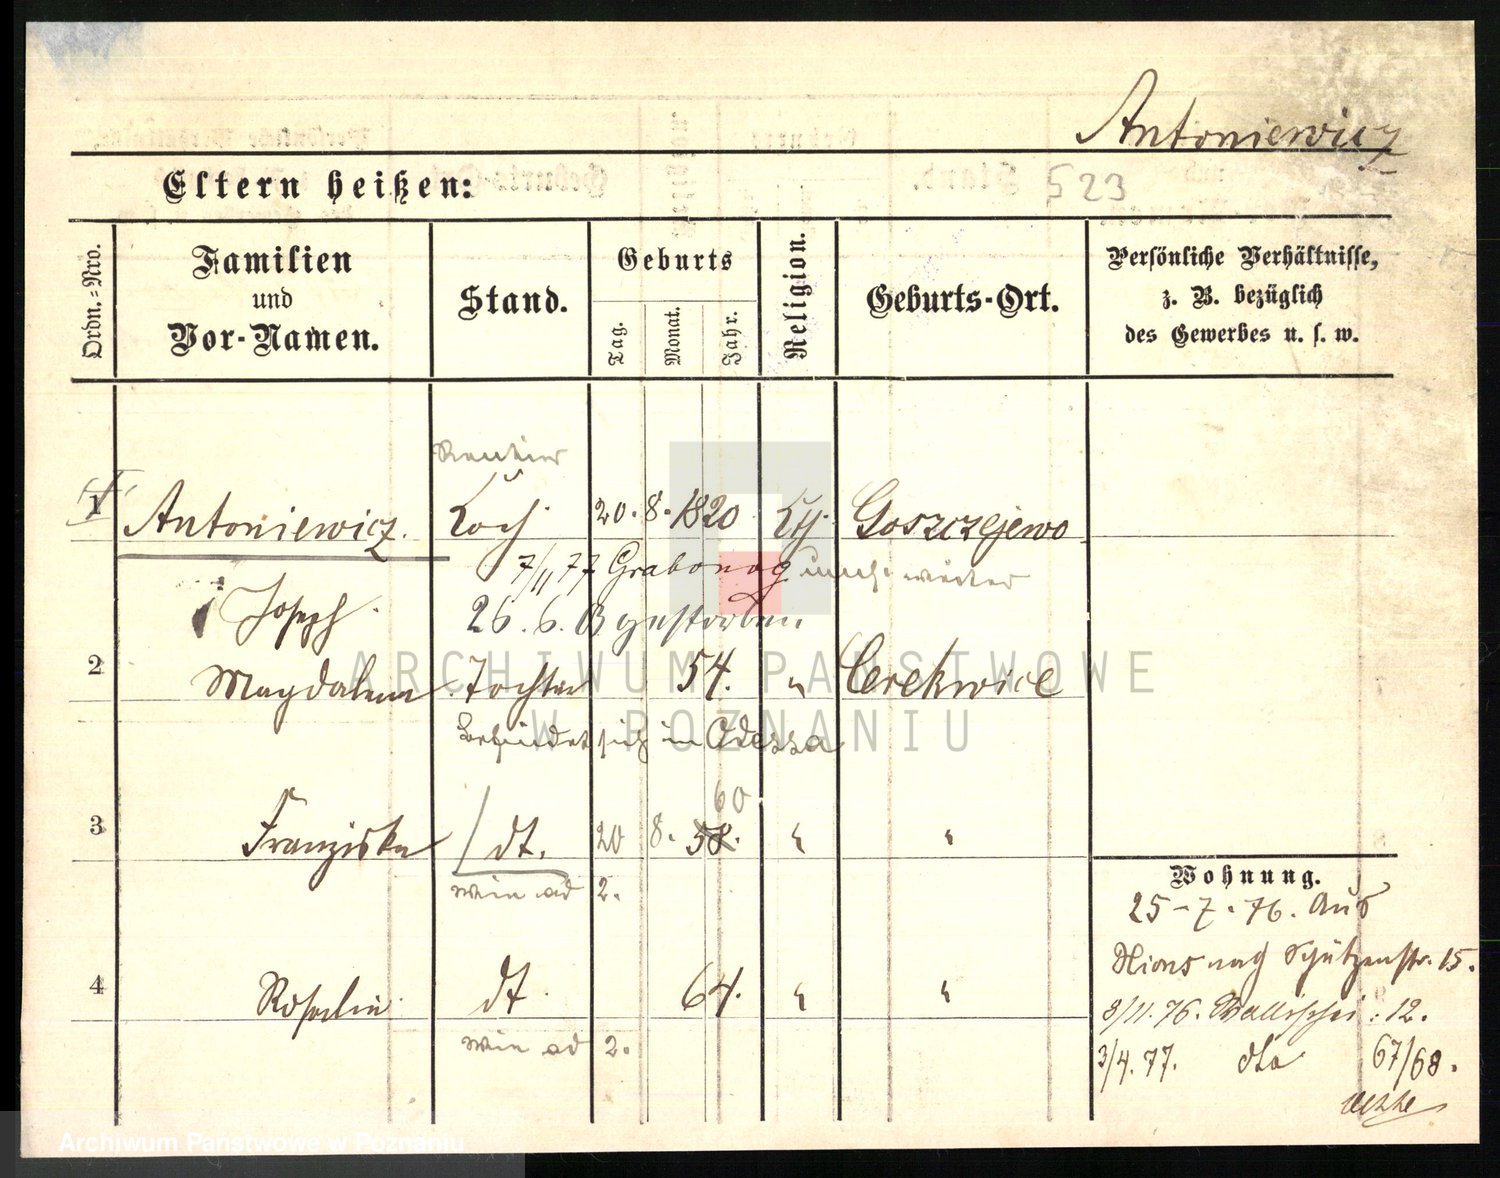 Antoniewicz
Eltern heißen:
523
Ordn.=Nro.
Familien
und
Vor-Namen.
Stand.
Geburts
Tag.
Monat.
Jahr.
Religion.
Geburts-Ort.
Persönliche Verhältnisse,
z. B. bezüglich
des Gewerbes u. s. w.
Rentier
1 Antoniewicz Koch 20. 8. 1820 Kth. Goszczejewo
7/11 77 Grabonog
Joseph
26. 6. gestorben
2 Magdalena Tochter 54. " Cerekwice
befindet sich in Odessa
60
3 Franziska dt. 20 8. 58. " "
wie ad 2.
4 Rosalie dt 64. " "
wie ad 2.
Wohnung.
25-7-76. Aus
nach Schützenstr. 15.
3/11. 76. Wallischei 12.
3/4. 77. dto 67/68.
ARCHIWUM PAŃSTWOWE
W POZNANIU
Archiwum Państwowe w Poznaniu